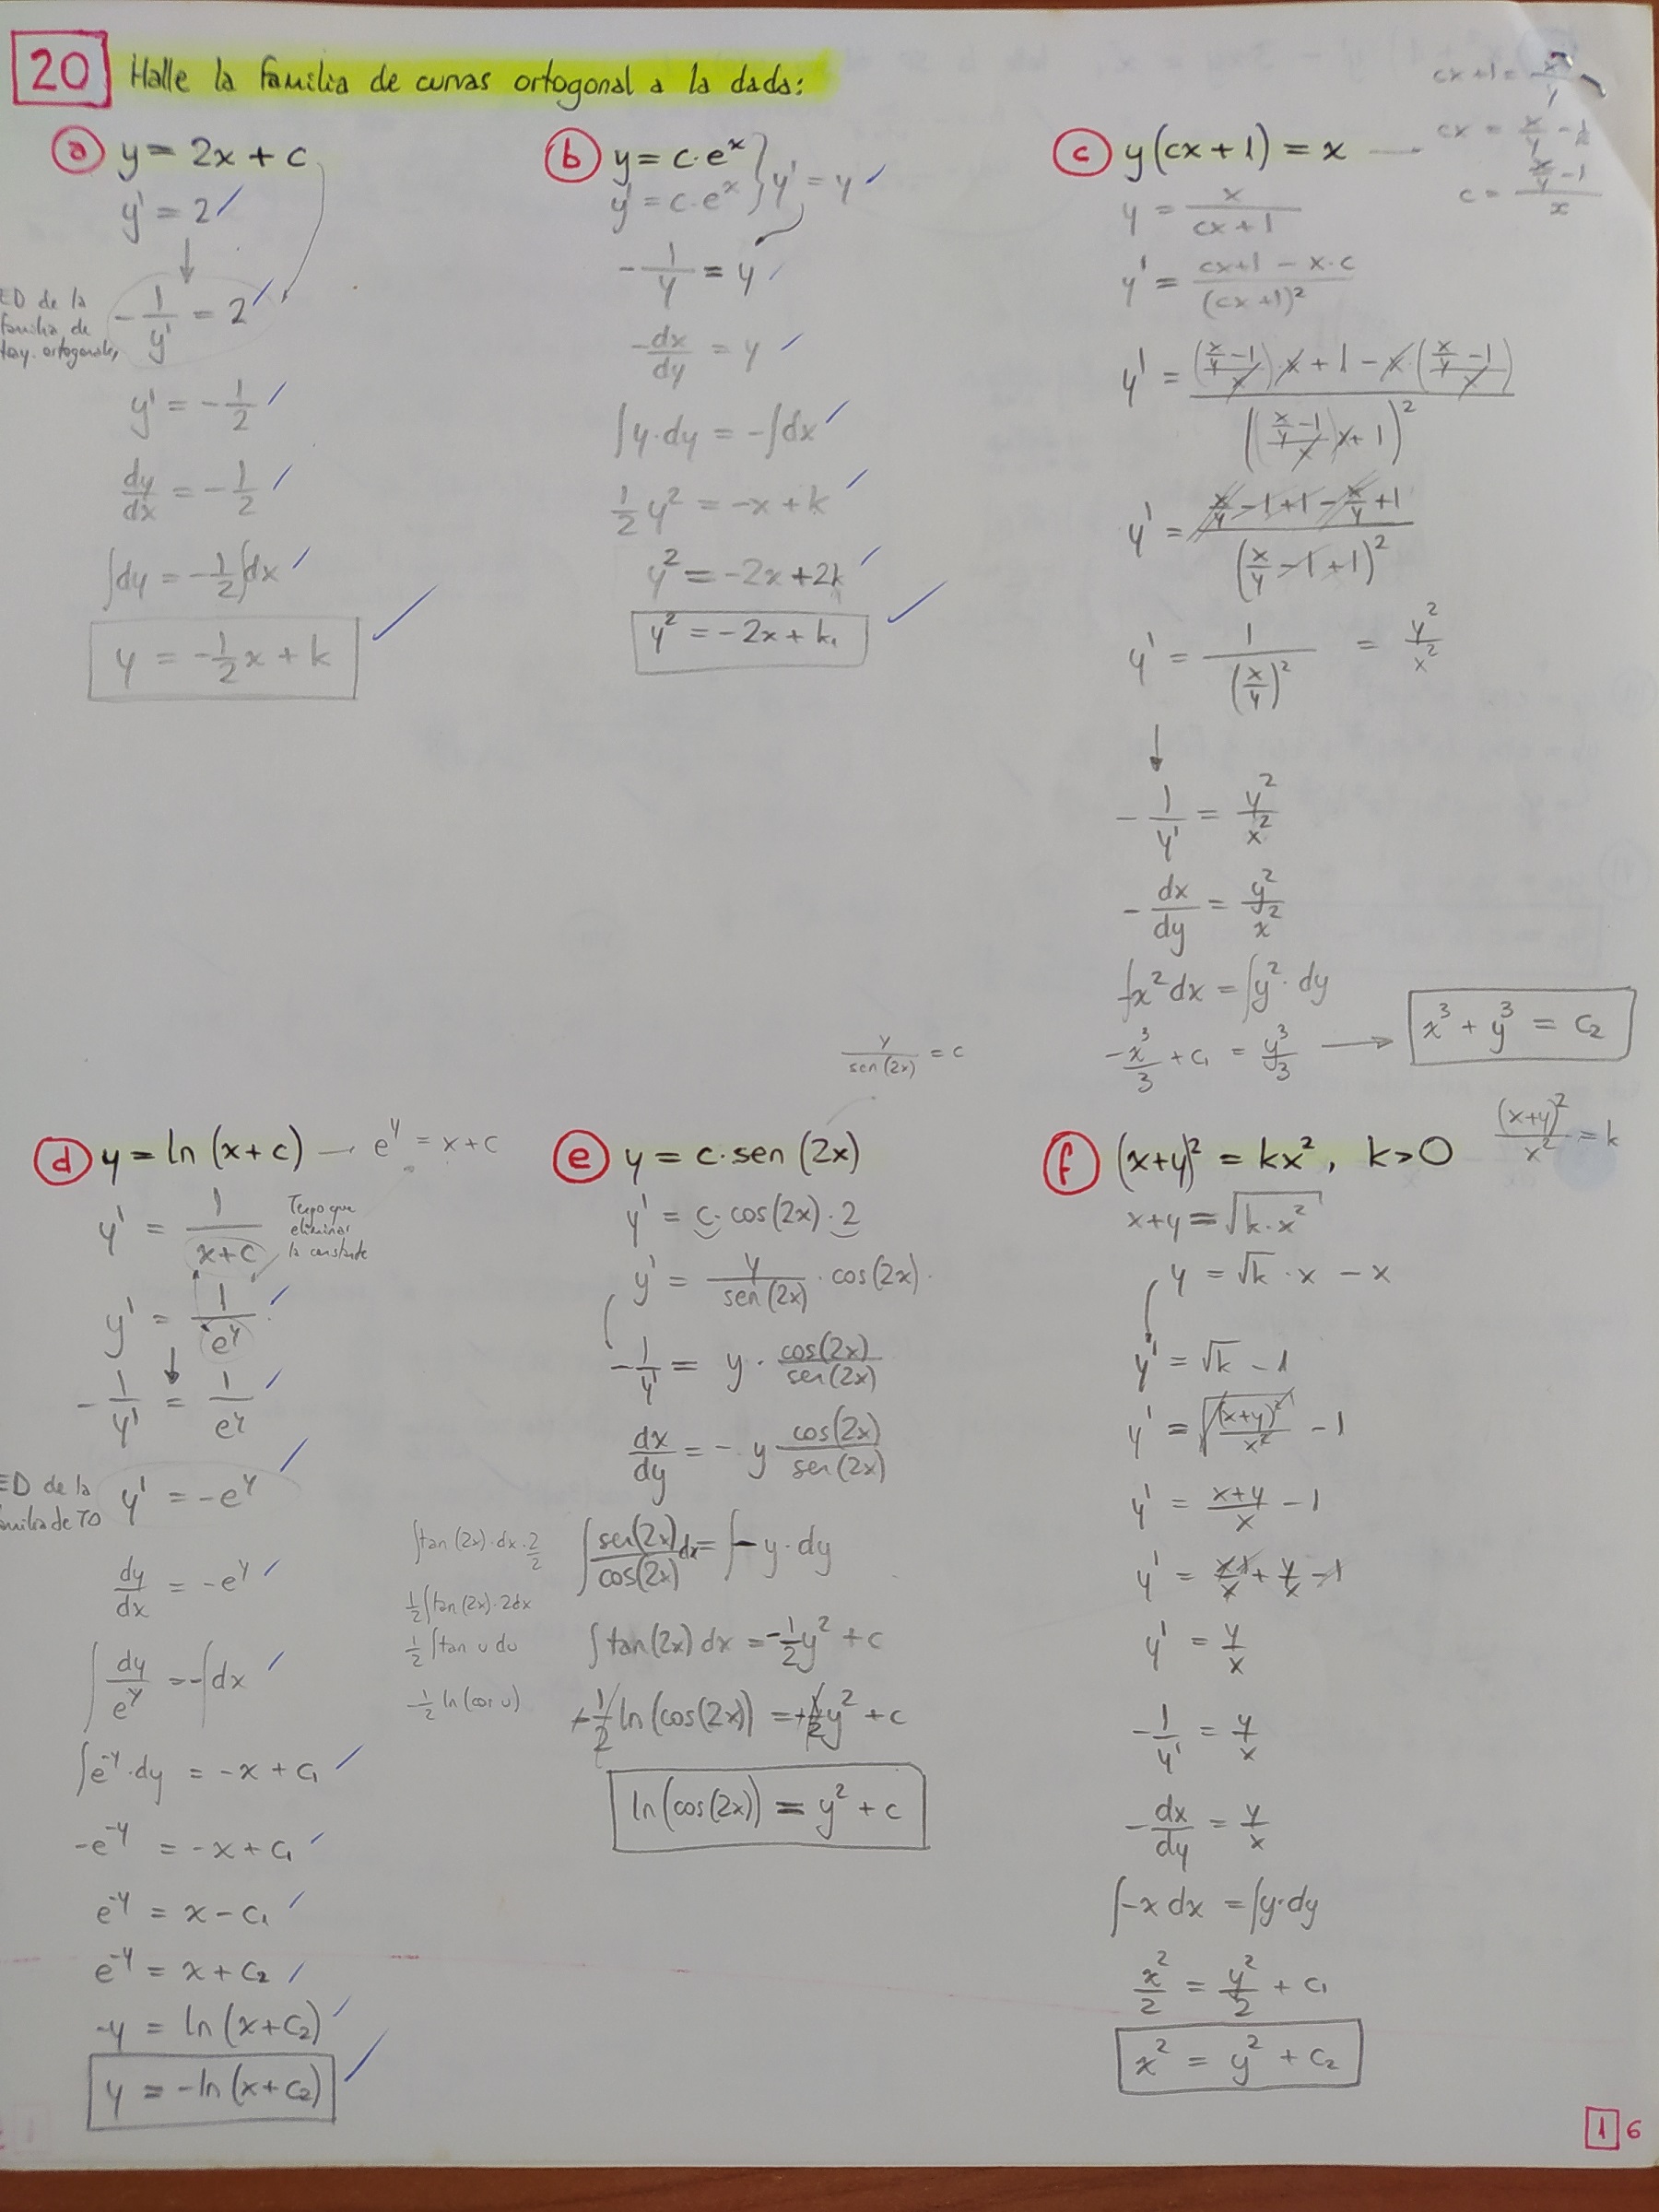 20 Halle la familia de curvas ortogonal a la dada:
a y = 2x + c
y' = 2
ED de la
familia de
tray. ortogonales
-1/y' = 2
y' = -1/2
dy/dx = -1/2
∫dy = -1/2 ∫dx
y = -1/2 x + k
b y = c·e^x
y' = c·e^x } y' = y
-1/y = y
-dx/dy = y
∫y·dy = -∫dx
1/2 y² = -x + k
y² = -2x + 2k
y² = -2x + k₁
c y(cx + 1) = x
cx + 1 = x/y
cx = x/y - 1
c = (x/y - 1)/x
y = x/(cx + 1)
y' = (cx+1 - x·c)/(cx+1)²
y' = (((x/y - 1)/x)·x + 1 - x·((x/y - 1)/x))/(((x/y - 1)/x)x + 1)²
y' = (x/y - 1 + 1 - x/y + 1)/(x/y - 1 + 1)²
y' = 1/(x/y)² = y²/x²
-1/y' = y²/x²
-dx/dy = y²/x²
-∫x² dx = ∫y²·dy
-x³/3 + c₁ = y³/3 → x³ + y³ = c₂
d y = ln (x + c) → e^y = x + c
y' = 1/(x+c)
Tengo que
eliminar
la constante
y' = 1/e^y
-1/y' = 1/e^y
ED de la
familia de TO
y' = -e^y
dy/dx = -e^y
∫dy/e^y = -∫dx
∫e^-y·dy = -x + c₁
-e^-y = -x + c₁
e^-y = x - c₁
e^-y = x + c₂
-y = ln (x + c₂)
y = -ln (x + c₂)
e y = c·sen (2x)
y/sen(2x) = c
y' = c·cos(2x)·2
y' = y/sen(2x) · cos(2x)·
-1/y' = y · cos(2x)/sen(2x)
dx/dy = -y cos(2x)/sen(2x)
∫sen(2x)/cos(2x) dx = ∫-y·dy
∫tan(2x)·dx·2/2
1/2 ∫tan(2x)·2dx
1/2 ∫tan u du
-1/2 ln(cos u)
∫tan(2x) dx = -1/2 y² + c
+1/2 ln(cos(2x)) = +1/2 y² + c
ln(cos(2x)) = y² + c
f (x+y)² = kx², k > 0
(x+y)²/x² = k
x+y = √(k·x²)
y = √k · x - x
y' = √k - 1
y' = √((x+y)²/x²) - 1
y' = (x+y)/x - 1
y' = x/x + y/x - 1
y' = y/x
-1/y' = y/x
-dx/dy = y/x
∫-x dx = ∫y·dy
x²/2 = y²/2 + c₁
x² = y² + c₂
1 6